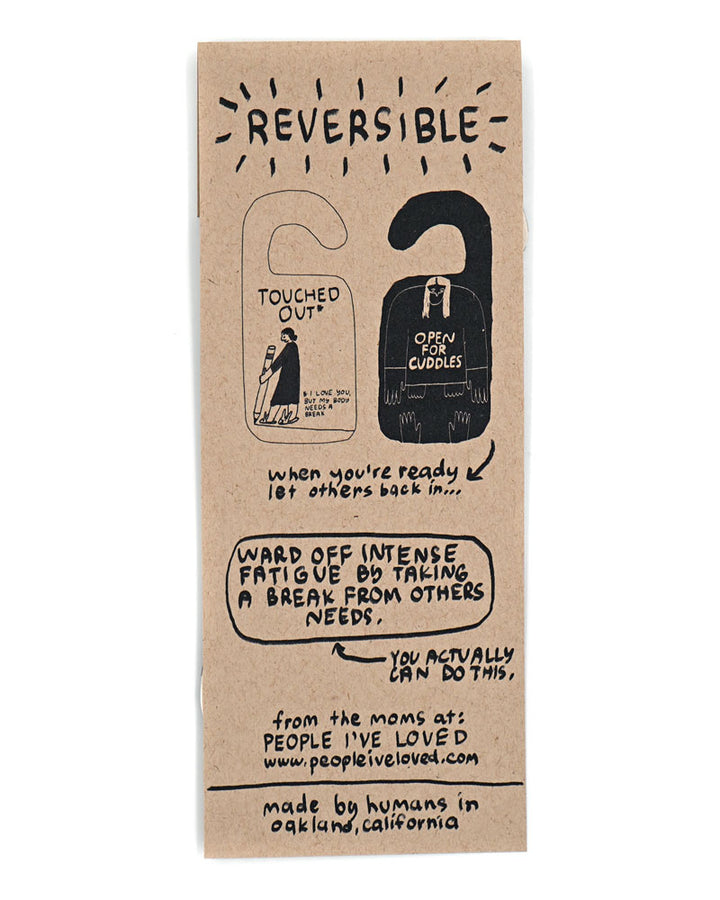 REVERSIBLE
TOUCHED
OUT*
* I LOVE YOU,
BUT MY BODY
NEEDS A
BREAK
OPEN
FOR
CUDDLES
when you're ready
let others back in...
WARD OFF INTENSE
FATIGUE BY TAKING
A BREAK FROM OTHERS
NEEDS.
YOU ACTUALLY
CAN DO THIS.
from the moms at:
PEOPLE I'VE LOVED
www.peopleiveloved.com
made by humans in
oakland, california